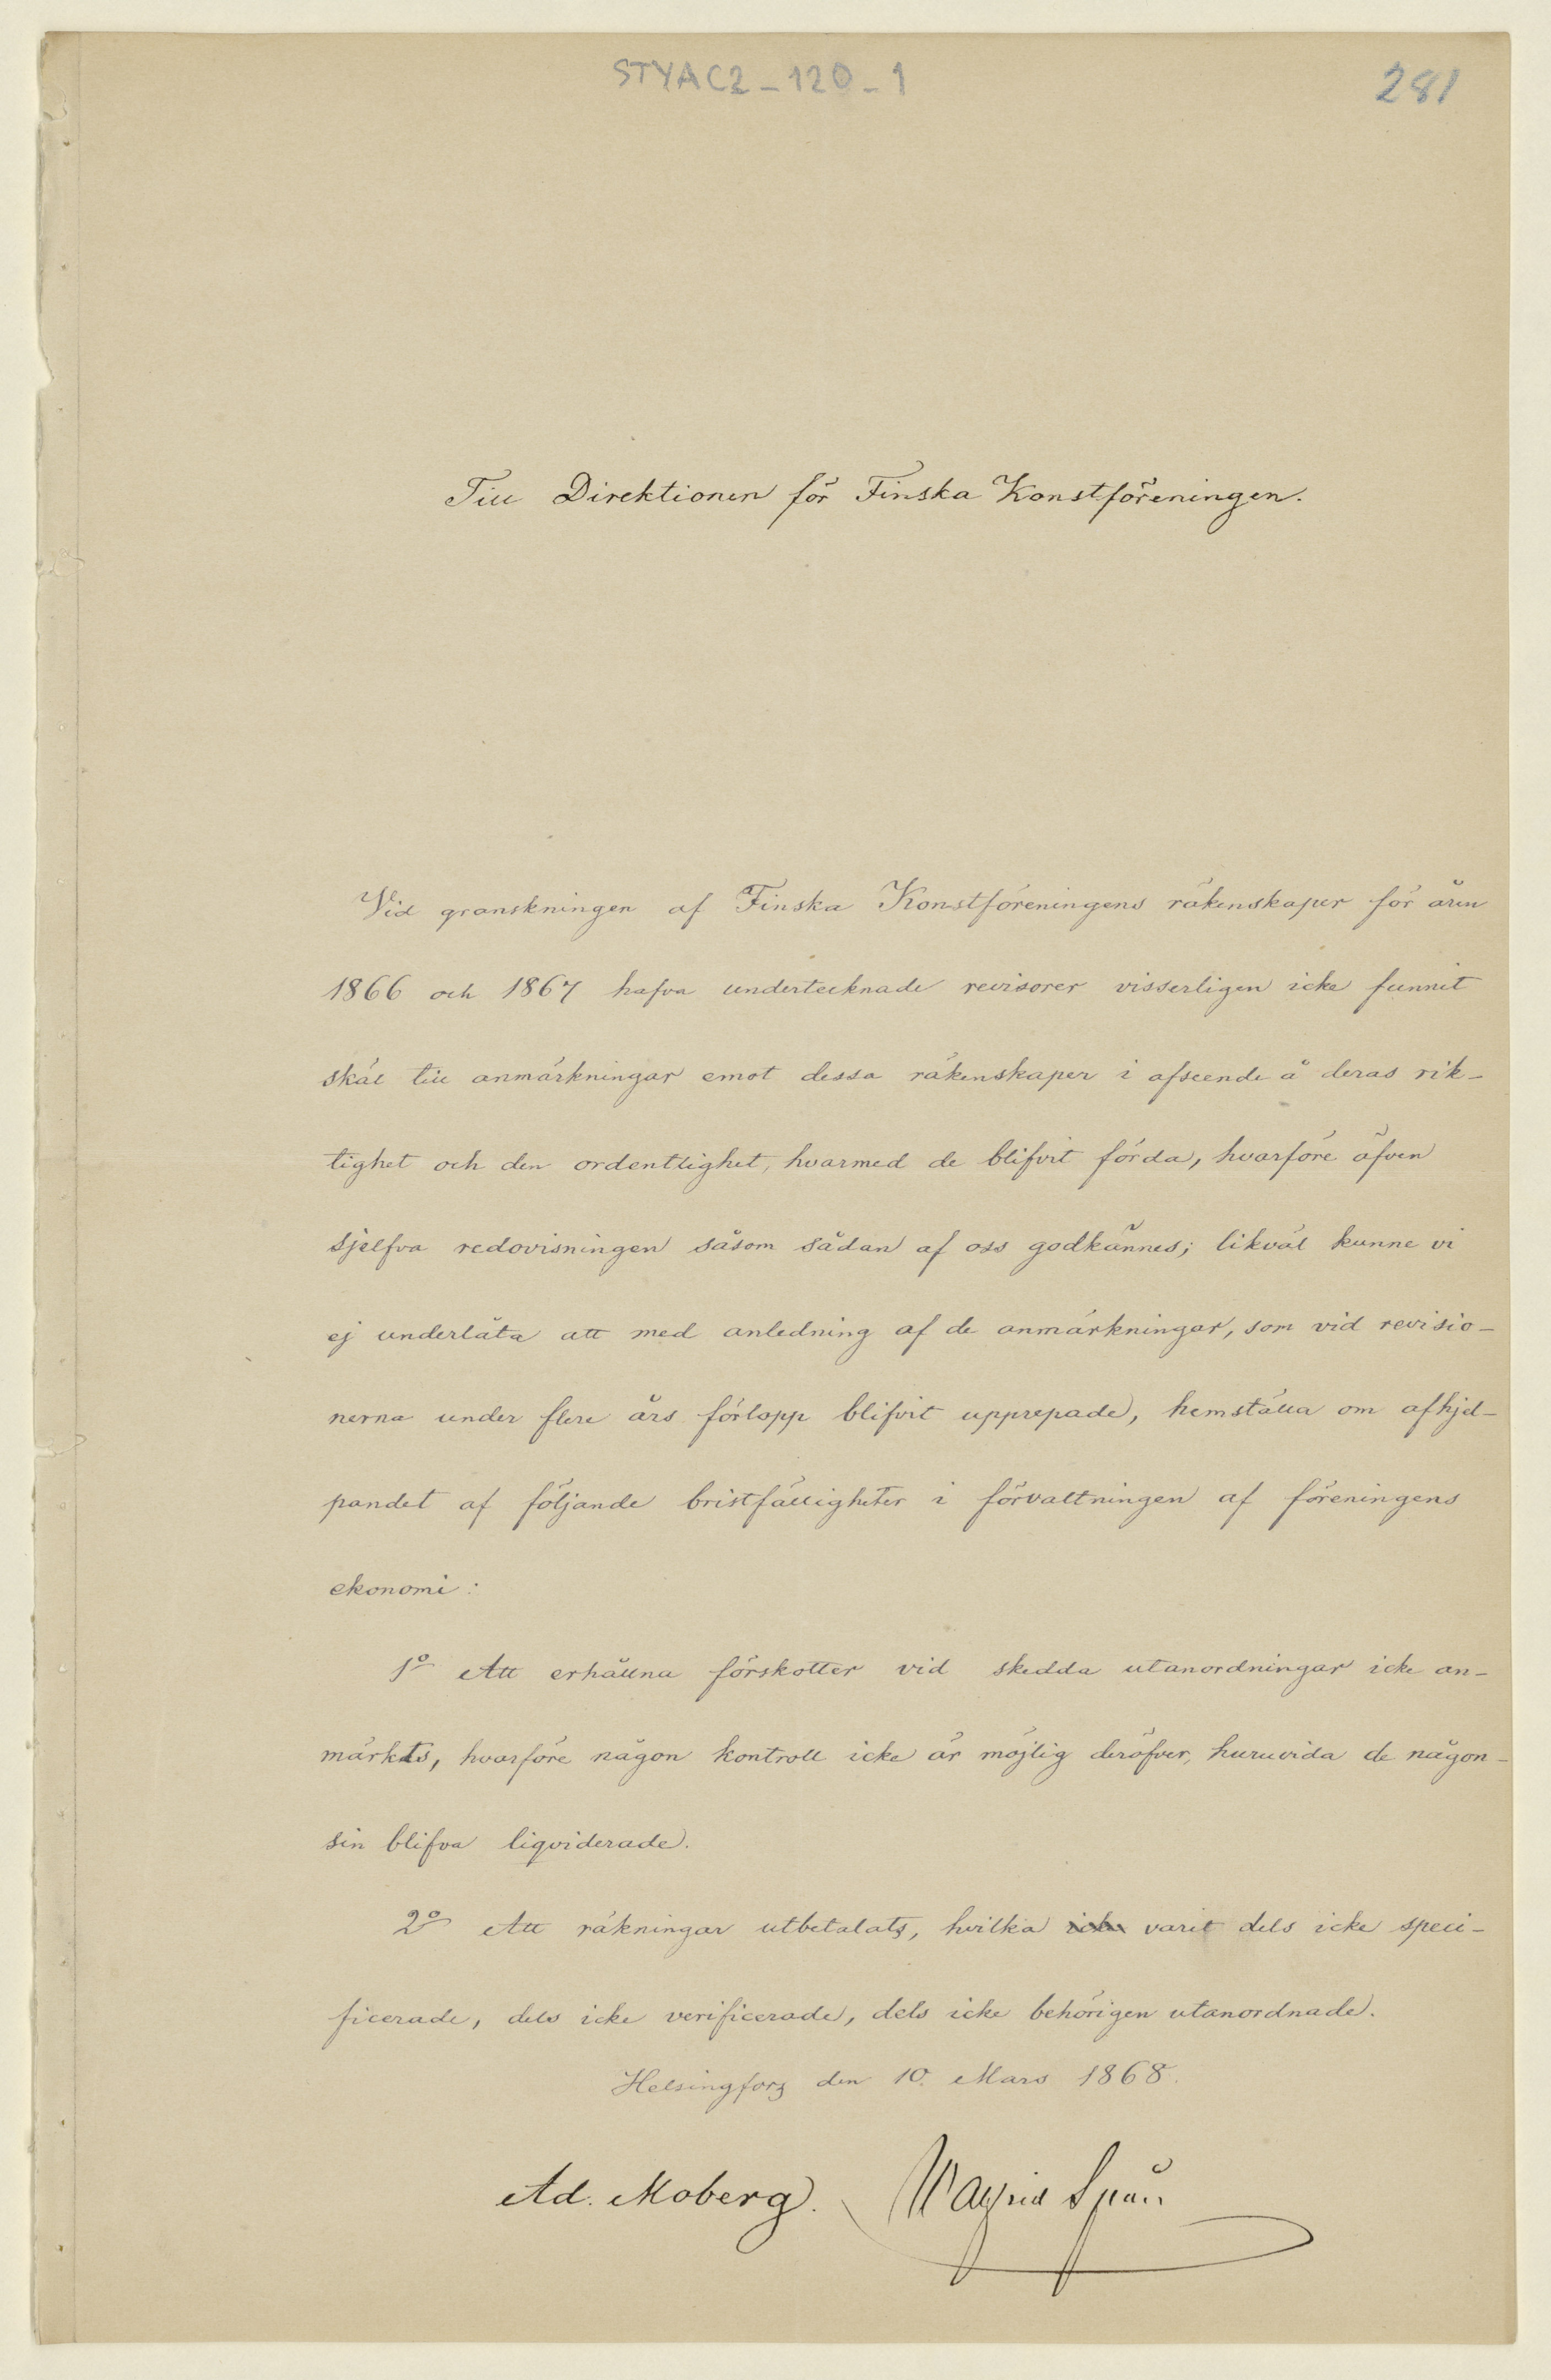 STYAC2_120_1
281
Till Direktionen för Finska Konstföreningen.
Vid granskningen af Finska Konstföreningens räkenskaper för åren
1866 och 1867 hafva undertecknade revisorer visserligen icke funnit
skäl till anmärkningar emot dessa räkenskaper i afseende å deras rik-
tighet och den ordentlighet, hvarmed de blifvit förda, hvarföre äfven
sjelfva redovisningen såsom sådan af oss godkännes; likväl kunne vi
ej underlåta att med anledning af de anmärkningar, som vid revisio-
nerna under flere års förlopp blifvit upprepade, hemställa om afhjel-
pandet af följande bristfälligheter i förvaltningen af föreningens
ekonomi:
1o Att erhållna förskotter vid skedda utanordningar icke an-
märkts, hvarföre någon kontroll icke är möjlig deröfver, huruvida de någon-
sin blifva liqviderade.
2o Att räkningar utbetalats, hvilka icke varit dels icke speci-
ficerade, dels icke verificerade, dels icke behörigen utanordnade.
Helsingfors den 10. Mars 1868.
Ad. Moberg.